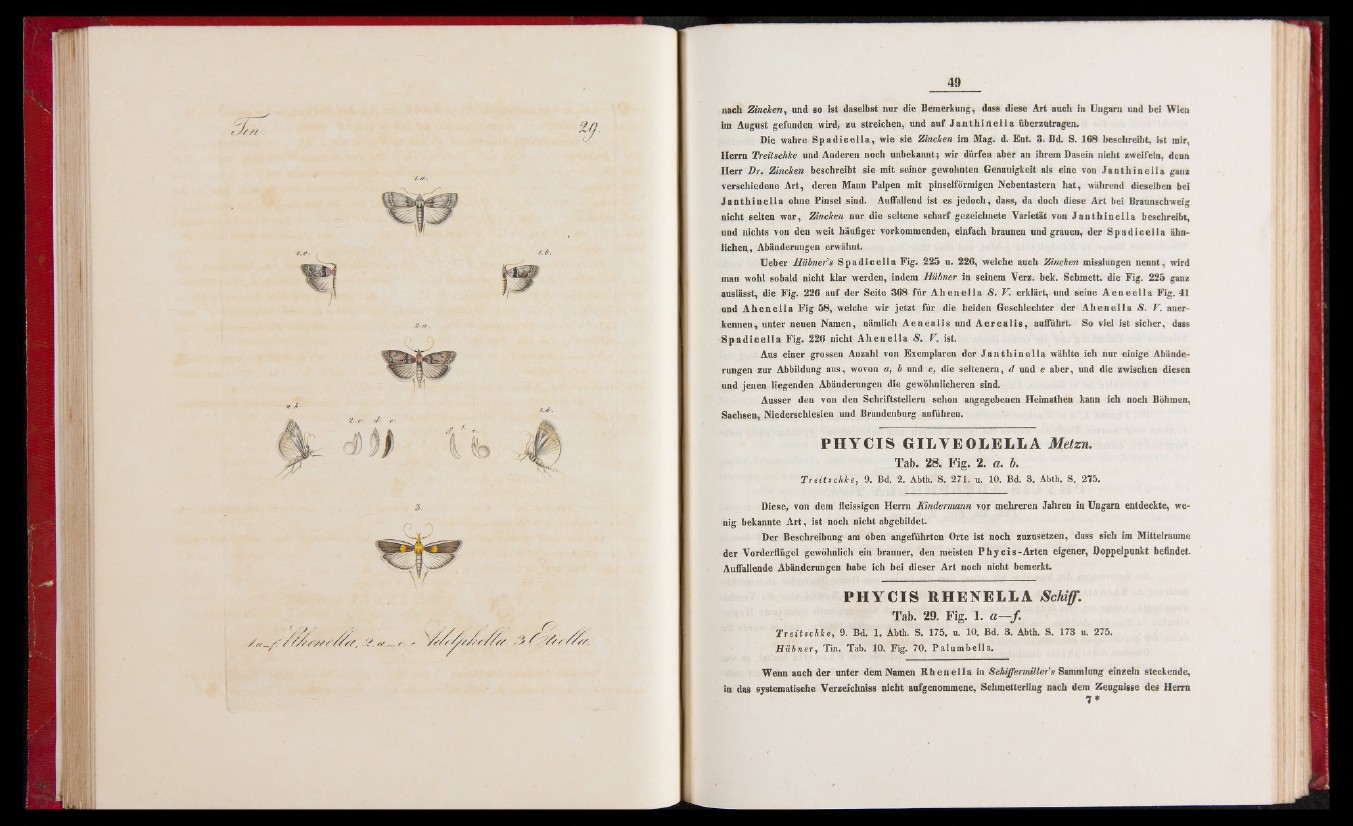 Tin.
29.
1. a.
1. c.
1. b.
2. a.
2. b
1. d.
2. c. d. e.
f. e.
3.
1. a_f. Rhenella, 2. a_e. Adelphella 3. Etiella.
49
nach Zincken, und so ist daselbst nur die Bemerkung, dass diese Art auch in Ungarn und bei Wien
im August gefunden wird, zu streichen, und auf Janthinella überzutragen.
Die wahre Spadicella, wie sie Zincken im Mag. d. Ent. 3. Bd. S. 168 beschreibt, ist mir,
Herrn Treitschke und Anderen noch unbekannt; wir dürfen aber an ihrem Dasein nicht zweifeln, denn
Herr Dr. Zincken beschreibt sie mit seiner gewohnten Genauigkeit als eine von Janthinella ganz
verschiedene Art, deren Mann Palpen mit pinselförmigen Nebentastern hat, während dieselben bei
Janthinella ohne Pinsel sind. Auffallend ist es jedoch, dass, da doch diese Art bei Braunschweig
nicht selten war, Zincken nur die seltene scharf gezeichnete Varietät von Janthinella beschreibt,
und nichts von den weit häufiger vorkommenden, einfach braunen und grauen, der Spadicella ähn-
lichen, Abänderungen erwähnt.
Ueber Hübner's Spadicella Fig. 225 u. 226, welche auch Zincken misslungen nennt, wird
man wohl sobald nicht klar werden, indem Hübner in seinem Verz. bek. Schmett. die Fig. 225 ganz
auslässt, die Fig. 226 auf der Seite 368 für Ahenella S. V. erklärt, und seine Aeneella Fig. 41
und Ahenella Fig 58, welche wir jetzt für die beiden Geschlechter der Ahenella S. V. aner-
kennen, unter neuen Namen, nämlich Aenealis und Aerealis, aufführt. So viel ist sicher, dass
Spadicella Fig. 226 nicht Ahenella S. V. ist.
Aus einer grossen Anzahl von Exemplaren der Janthinella wählte ich nur einige Abände-
rungen zur Abbildung aus, wovon a, b und c, die seltenern, d und e aber, und die zwischen diesen
und jenen liegenden Abänderungen die gewöhnlicheren sind.
Ausser den von den Schriftstellern schon angegebenen Heimathen kann ich noch Böhmen,
Sachsen, Niederschlesien und Brandenburg anführen.
PHYCIS GILVEOLELLA Metzn.
Tab. 28. Fig. 2. a. b.
Treitschke, 9. Bd. 2. Abth. S. 271. u. 10. Bd. 3. Abth. S. 275.
Diese, von dem fleissigen Herrn Kindermann vor mehreren Jahren in Ungarn entdeckte, we-
nig bekannte Art, ist noch nicht abgebildet.
Der Beschreibung am oben angeführten Orte ist noch zuzusetzen, dass sich im Mittelraume
der Vorderflügel gewöhnlich ein brauner, den meisten Phycis-Arten eigener, Doppelpunkt befindet.
Auffallende Abänderungen habe ich bei dieser Art noch nicht bemerkt.
PHYCIS RHENELLA Schiff.
Tab. 29. Fig. 1. a—f.
Treitschke, 9. Bd. 1. Abth. S. 175, u. 10. Bd. 3. Abth. S. 173 u. 275.
Hübner, Tin. Tab. 10. Fig. 70. Palumbella.
Wenn auch der unter dem Namen Rhenella in Schiffermiller's Sammlung einzeln steckende,
in das systematische Verzeichniss nicht aufgenommene, Schmetterling nach dem Zeugnisse des Herrn
7*